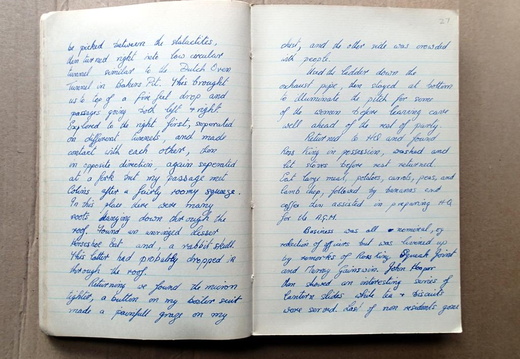 be picked between the stalactites,
then turned right into low circular
tunnel similar to the Dutch Oven
Tunnel in Bakers Pit. This brought
us to top of a five feet drop and
passages going both left & right
Explored to the right first, separated
on different tunnels and made
contact with each other, then
in opposite direction, again seperated
at a fork but my passage met
Colins after a fairly roomy squeeze.
In this place there were many
roots dangling down through the
roof. Found an winged lesser
Horseshoe bat and, a rabbit skull.
This latter had probably dropped in
through the roof.
Returning we found the
tighter, a button on my boiler suit
made a painfull graze on my
21
chest, and the other side was crowded
with people.
the ladder down the
exhaust pipe, then stayed at bottom
to illuminate the pitch for some
of the women before leaving cave
well ahead of the rest of party.
Returned to HQ and found
Ross King in possession, washed and
lit stoves before rest returned.
Eat large meal, potatoes, carrots, peas, and
Lamb chop, followed by bananas and
coffee then assisted in preparing HQ
for the A.G.M.
Business was all removal, of
reduction of officers but was livened up
by remarks of Ross King,
and Terry John Hooper
then showed an interesting series of
lantern slides while tea & biscuits
were served. Last of non residents gone